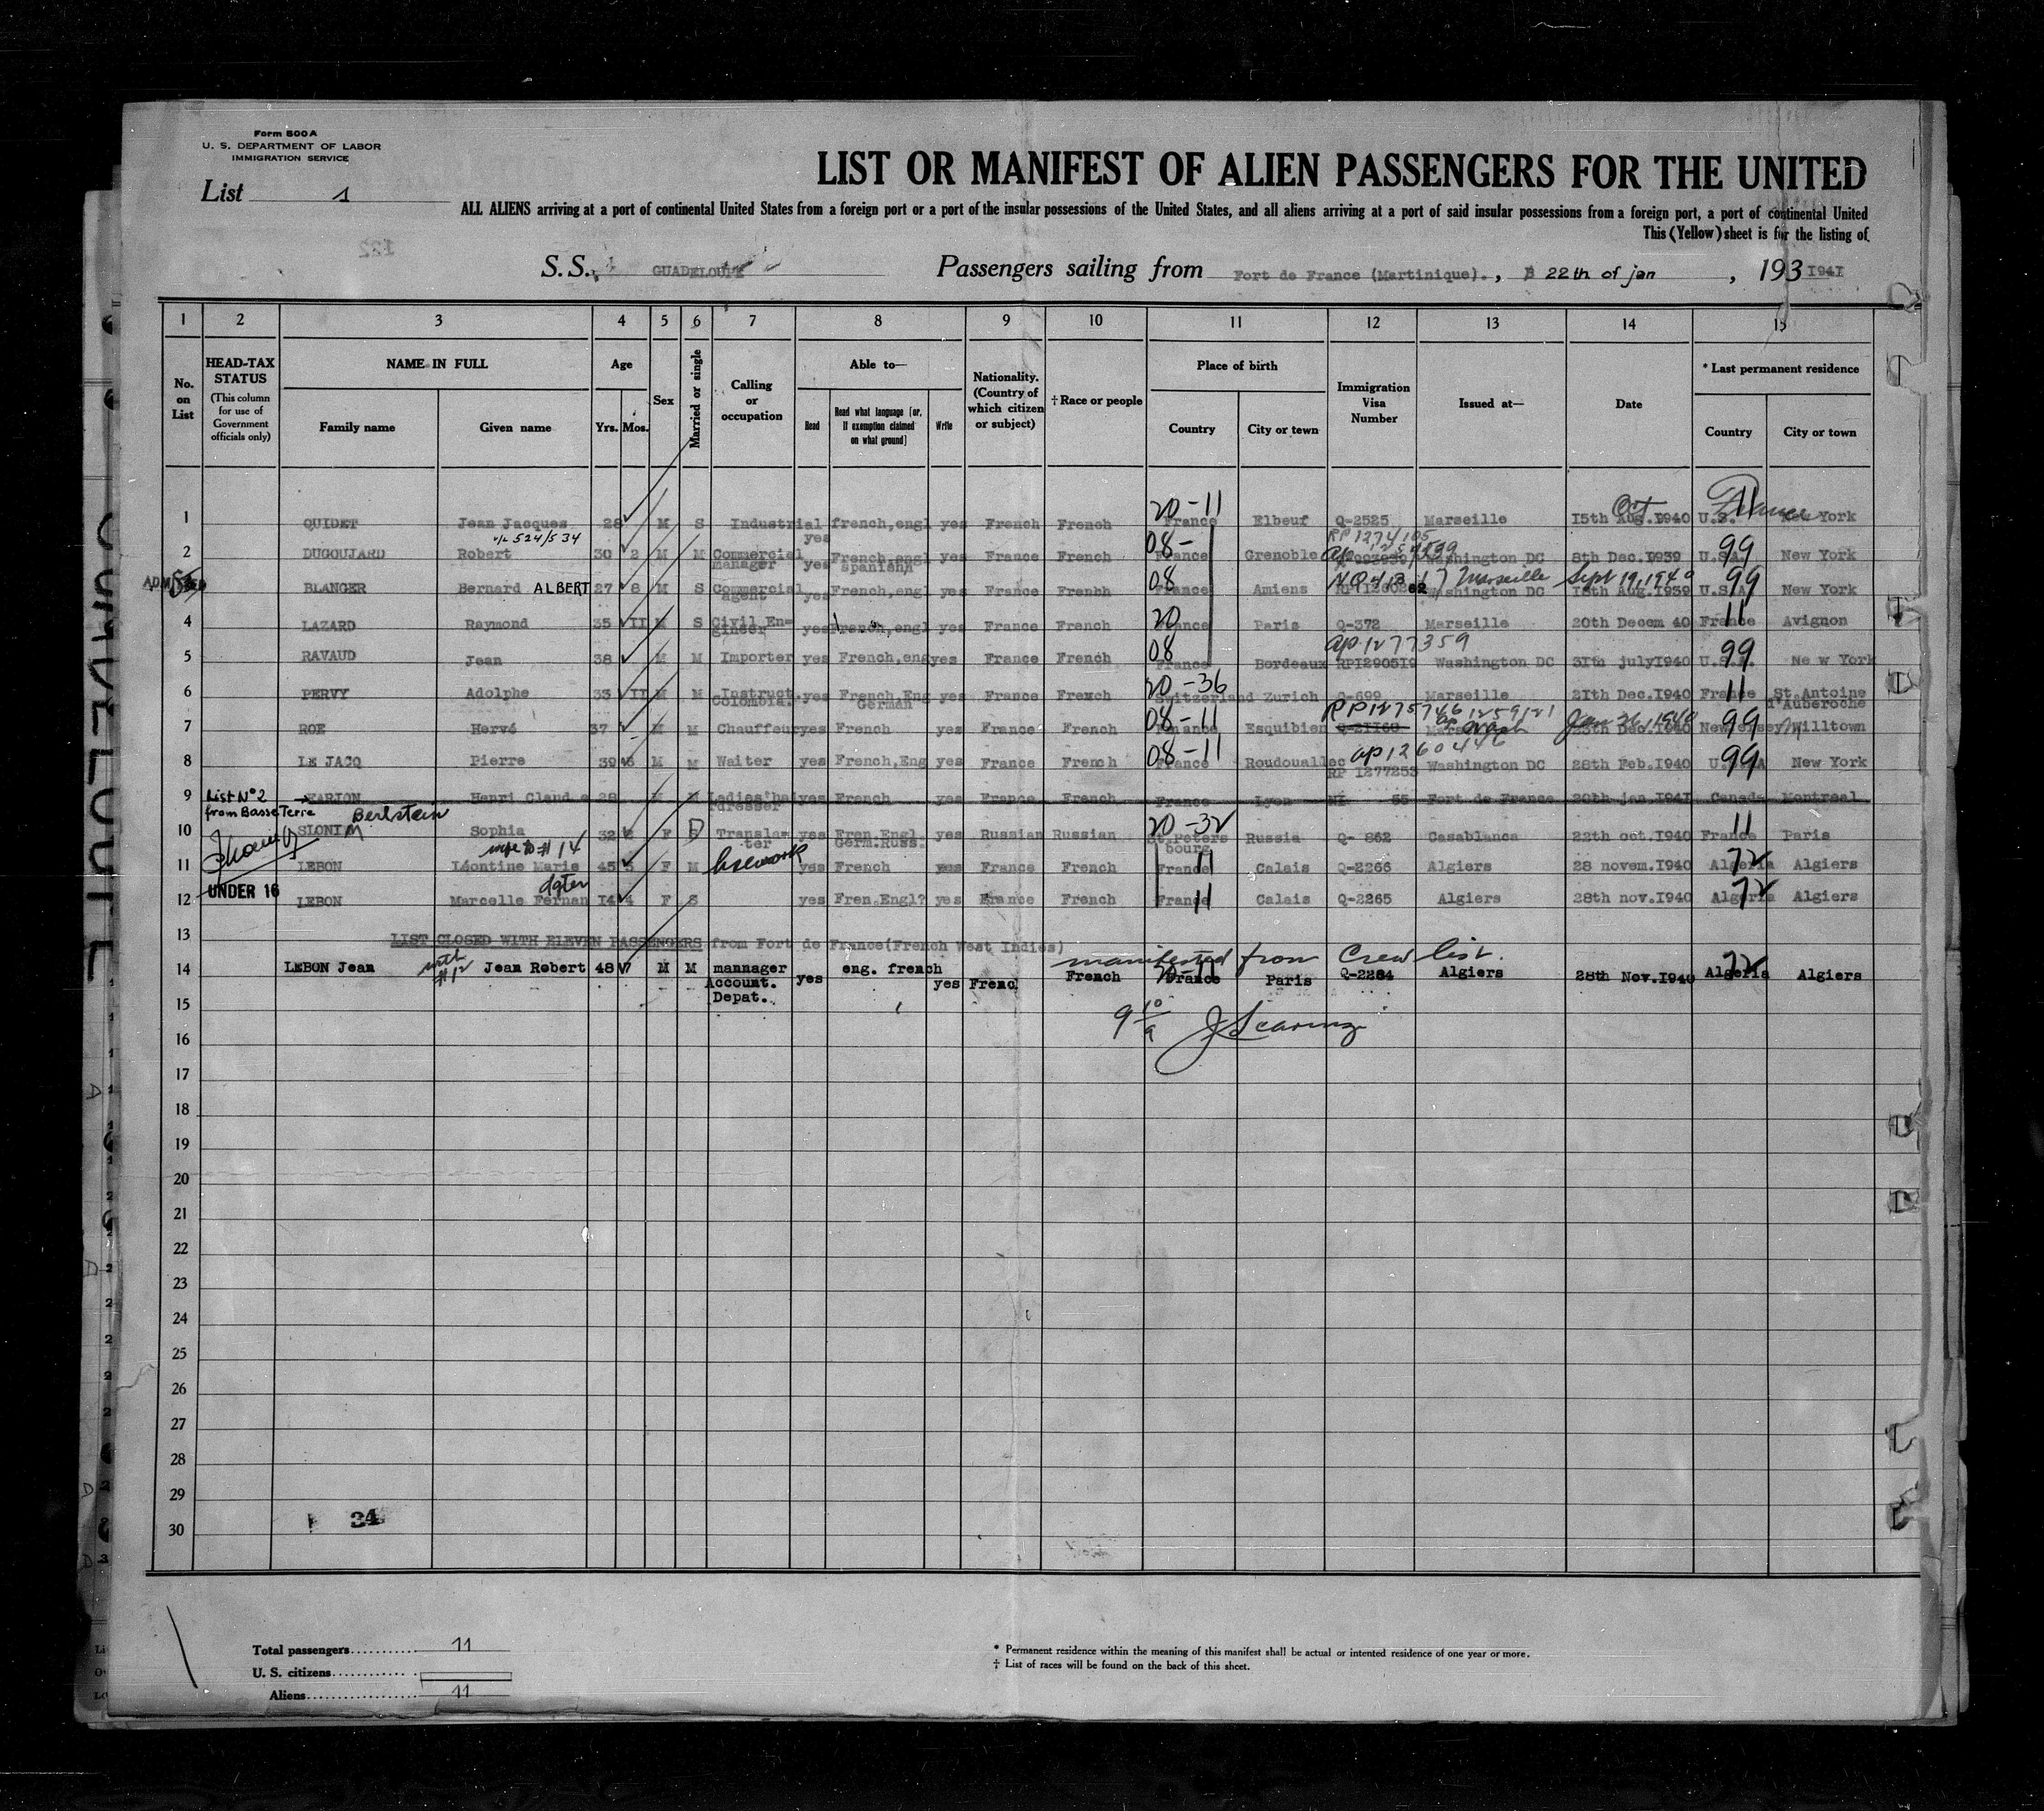 Form 500 A
U. S. DEPARTMENT OF LABOR
IMMIGRATION SERVICE
List 1
LIST OR MANIFEST OF ALIEN PASSENGERS FOR THE UNITED
ALL ALIENS arriving at a port of continental United States from a foreign port or a port of the insular possessions of the United States, and all aliens arriving at a port of said insular possessions from a foreign port, a port of continental United
This (Yellow) sheet is for the listing of
S.S. GUADELOUPE Passengers sailing from Fort de France (Martinique)., 22th of jan , 193 I94I
1 2 3 4 5 6 7 8 9 10 11 12 13 14 15
No. on List
HEAD-TAX STATUS (This column for use of Government officials only)
NAME IN FULL Family name Given name
Age Yrs. Mos.
Sex
Married or single
Calling or occupation
Able to— Read Read what language [or, if exemption claimed on what ground] Write
Nationality. (Country of which citizen or subject)
† Race or people
Place of birth Country City or town
Immigration Visa Number
Issued at—
Date
* Last permanent residence Country City or town
1 QUIDET Jean Jacques 28 M S Industrial yes french,engl yes French French 20-11 France Elbeuf Q-2525 Marseille Oct I5th Aug. I940 U.S. 11 France New York
2 DUGOUJARD Robert 30 2 M M Commercial manager yes French,engl spanish yes France French 08- France Grenoble RP 1274105 Washington DC 8th Dec. I939 U.S.A. 99 New York
3 BLANGER Bernard ALBERT 27 8 M S Commercial agent yes French,engl yes France French 08 France Amiens Marseille Sept 19, 1940 Washington DC I8th Aug.I939 U.S.A. 99 New York
4 LAZARD Raymond 35 II M S Civil En- gineer yes French,engl yes France French 20 France Paris Q-372 Marseille 20th Decem 40 France 11 Avignon
5 RAVAUD Jean 38 M M Importer yes French,eng yes France French 08 France Bordeaux ap 1277359 RPI290519 Washington DC 3Ith julyI940 U.S.A. 99 Ne w York
6 PERVY Adolphe 33 II M M Instruct. Colombia. yes French,Eng German yes France French 20-36 Switzerland Zurich Q-699 Marseille 2Ith Dec.I940 France 11 St.Antoine d'Auberoche
7 ROE Hervé 37 M M Chauffeur yes French yes France French 08-11 France Esquibien RP1275746 1259121 Q-2II68 23th Dec.I940 New Jersey 99 Milltown
8 LE JACQ Pierre 39 6 M M Waiter yes French,Eng yes France French 08-11 France Roudouallec ap 1260446 RP 1277253 Washington DC 28th Feb.I940 U.S.A 99 New York
List No 2 from Basse Terre
9 FARION Henri Claude 28 M M Ladies'hai rdresser yes French yes France French France Lyon 55 Fort de France 20th jan.I94I Canada Montreal
10 SLONIM Berlstein Sophia 32 F S D Transla- ter yes Fren.Engl. Germ.Russ. yes Russian Russian 20-32 St.Peters bourg Russia Q- 862 Casablanca 22th oct.I940 France 11 Paris
wife to # 14
11 LEBON Léontine Marie 45 5 F M hsework yes French yes France French France 11 Calais Q-2266 Algiers 28 novem.I940 Algeria 72 Algiers
UNDER 16 dgter
12 LEBON Marcelle Fernan I4 4 F S yes Fren.Engl? yes France French France 11 Calais Q-2265 Algiers 28th nov.I940 Algeria 72 Algiers
13 LIST CLOSED WITH ELEVEN PASSENGERS from Fort de France(French West Indies)
manifested from Crew list.
14 LEBON Jean with #12 Jean Robert 48 7 M M mannager Account. Depat. yes eng. french yes Frenc French 20-11 France Paris Q-2264 Algiers 28th Nov.1940 Algeria 72 Algiers
15
16
17
18
19
20
21
22
23
24
25
26
27
28
29
30
34
Total passengers 11
U. S. citizens
Aliens 11
* Permanent residence within the meaning of this manifest shall be actual or intented residence of one year or more.
† List of races will be found on the back of this sheet.